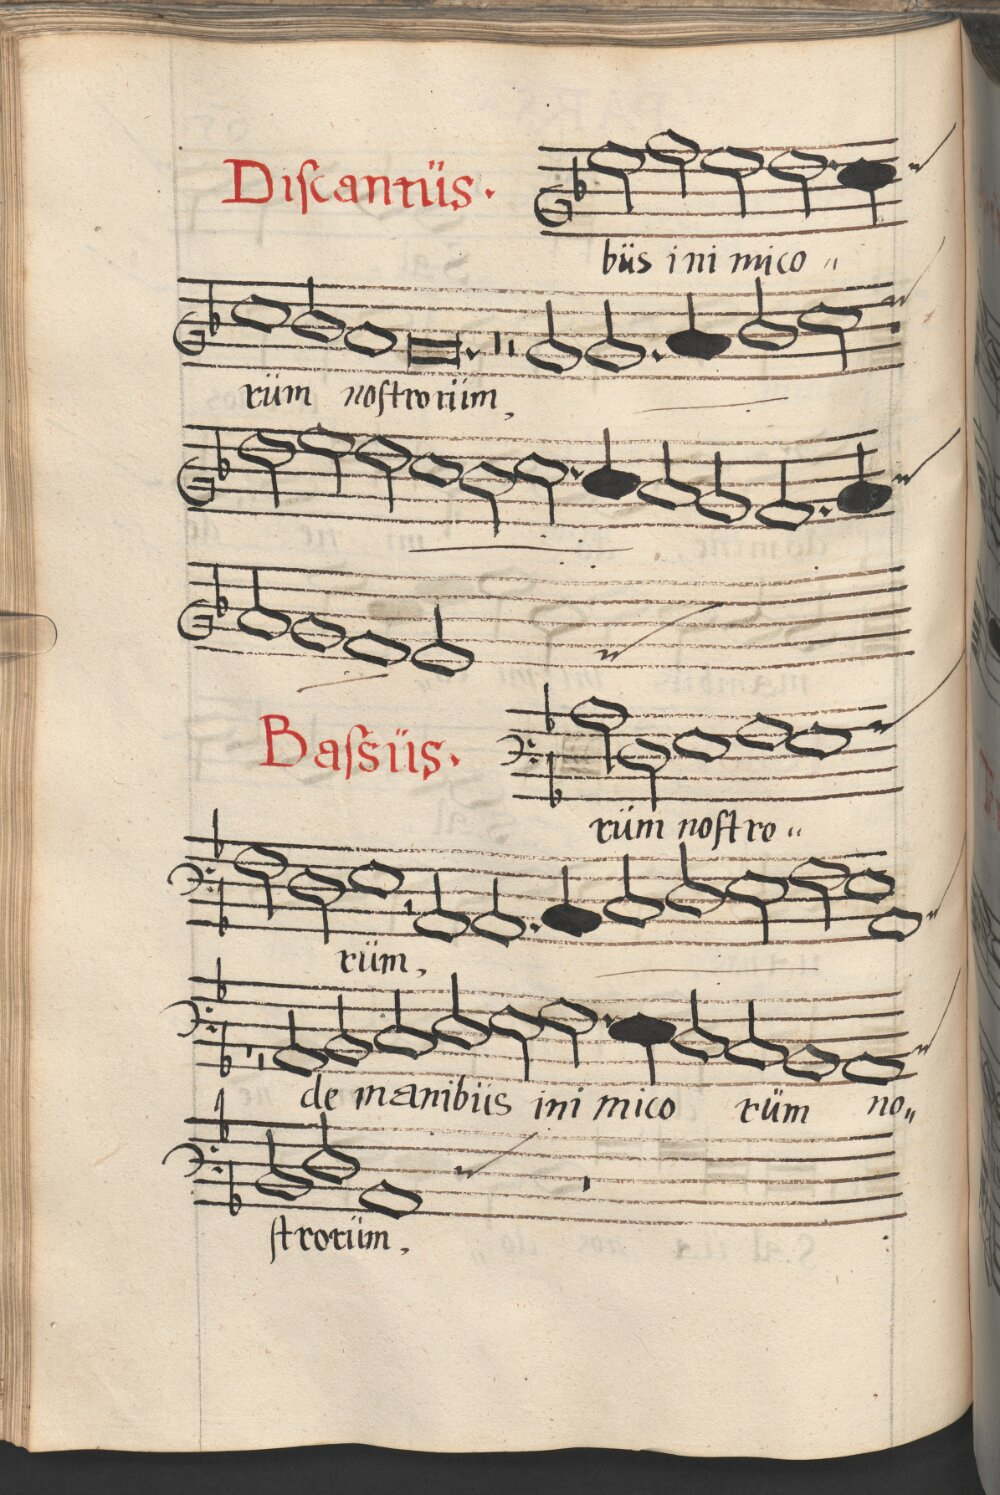 Discantüs.
büs inimico„
rüm nostrorüm,
Bassüs.
rüm nostro„
rüm,
de manibüs inimico rüm no„
strorüm,